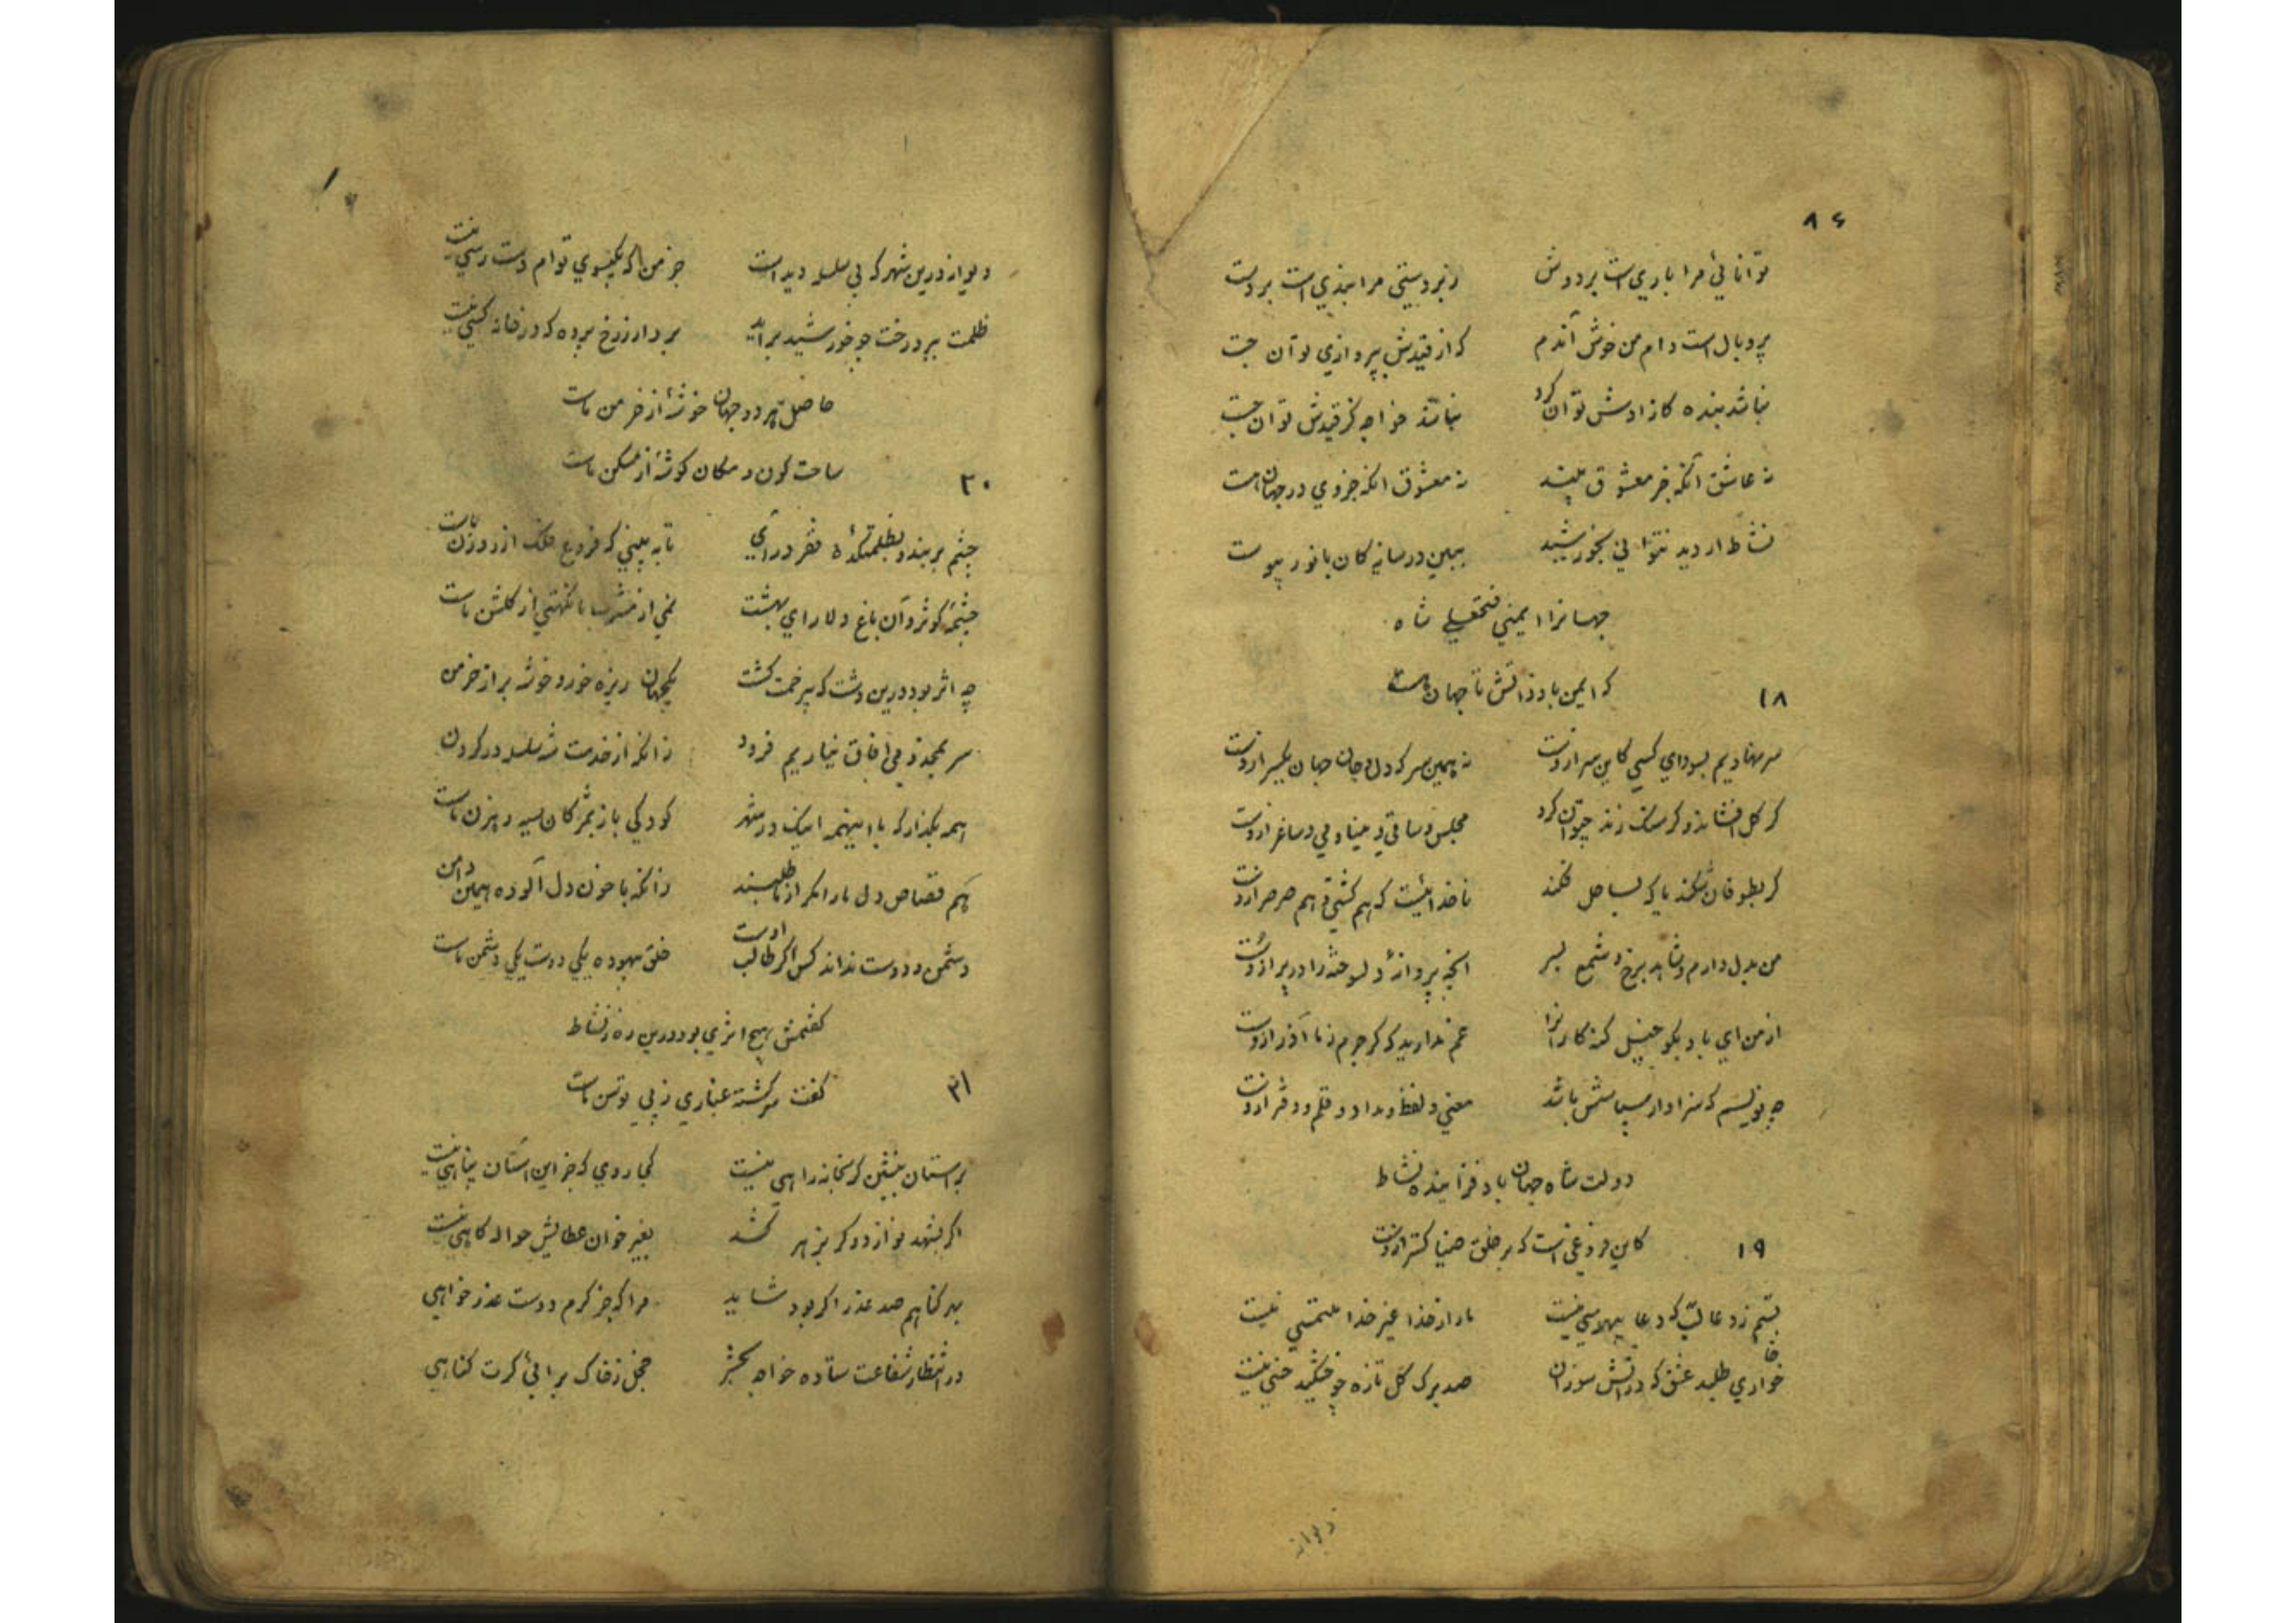 ۸۶
توانائی مرا باریست بر دوش زبردستی مرا بندیست بر دست
پر و بال است دام من خوش آندم که از قیدش بپروازی توان جست
نباشد بنده کازادش توان کرد نباشد خواجه کز قیدش توان جست
نه عاشق آنکه جز معشوق بیند نه معشوق انکه جز وی در جهان هست
نشاط ار دید نتوانی بخورشید ببین در سایه کان با نور پیوست
جهانرا ایمنی فتحعلی شاه
که ایمن باد ذاتش تا جهان هست
۱۸
سر نهادیم بسودای کسی کاین سر ازوست نه همین سر که دل و جان جهان یکسر ازوست
کر کل افشاند و کر سنک زند چتوان کرد مجلس و ساقی و مینا و می و ساغر ازوست
کر بطوفان شکند یا که بساحل فکند ناخدائیست که هم کشتی و هم صرصر ازوست
من بدل دارم و شاهد برخ و شمع بسر انچه پروانهٔ دلسوخته را در پر ازوست
از من ای باد بکو خیل کنه کارانرا غم ندارید که کر جرم ز ما آذر ازوست
چه نویسم که سزاوار سپاسش باشد معنی و لفظ و مداد و قلم و دفتر ازوست
دولت شاه جهان باد فزاینده نشاط
کاین فروغی است که بر خلق ضیا کستر ازوست
۱۹
بستم ز دعا لب که دعا بی هوسی نیست ما را ز خدا غیر خدا ملتمسی نیست
خواری طلبد عشق که در آتش سوزان صد برک کل تازه چو خشکید خسی نیست
دیوانه
دیوانه درین شهر که بی سلسله دید است جز من که بکیسوی توام دست رسی نیست
ظلمت ببرد رخت چو خورشید برآید بردار ز رخ پرده که در خانه کسی نیست
حاصل هر دو جهان خوشهٔ از خرمن ماست
ساحت کون و مکان کوشهٔ از مسکن ماست
۲۰
چشم بربند و بظلمتکدهٔ فقر درآی تا به بینی که فروغ فلک از روزن ماست
چشمهٔ کوثر و آن باغ دلارای بهشت نمی از مشرب ما نکهتی از کلشن ماست
چه اثر بود درین دشت که بیزحمت کشت یکجهان ریزه خور و خوشه بر از خرمن
سر بمجد و می افاق نیاریم فرود زانکه از خدمت شه سلسله در کردن
همه بکذار که با اینهمه اینک در شهر کودکی باز بمژکان سیه رهزن ماست
هم قصاص دل ما را مکر از ما طلبند زانکه با خون دل آلوده همین دامن
دشمن و دوست نداند کس اکر طالب اوست خلق بیهوده یکی دوست یکی دشمن ماست
کفتمش هیچ اثری بود درین ره ز نشاط
کفت سرکشته غباری ز پی توسن ماست
۲۱
بر آستان بنشین کر بخانه راهی نیست کجا روی که جز این آستان پناهی نیست
اکر بشهد نوازد و کر بزهر کشد بغیر خوان عطایش حواله کاهی نیست
بهر کناهم صد عذر اکر بود شاید مرا که جز کرم دوست عذر خواهی
در انتظار شفاعت ستاده خواجه بحشر خجل ز خاک برائی کرت کناهی